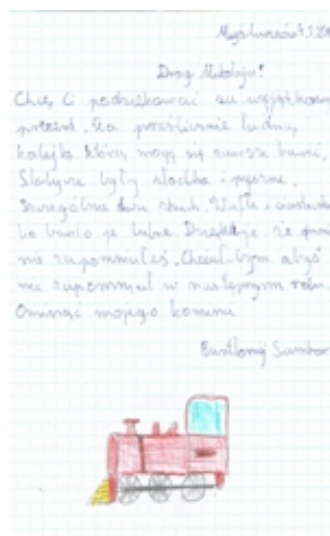 Drogi Mikołaju!
Chcę Ci podziękować za wyjątkowy
prezent. Za prześlicznie ładną
kolejkę którą mogę się zawsze bawić.
Słodycze były słodkie i pyszne.
Szczególnie dwa
bo bardzo je lubię. Dziękuję że o mnie
nie zapomniałeś. Chciałbym abyś
nie zapomniał w następnym roku.
Ominąć mojego komina
Bartłomiej Sambor